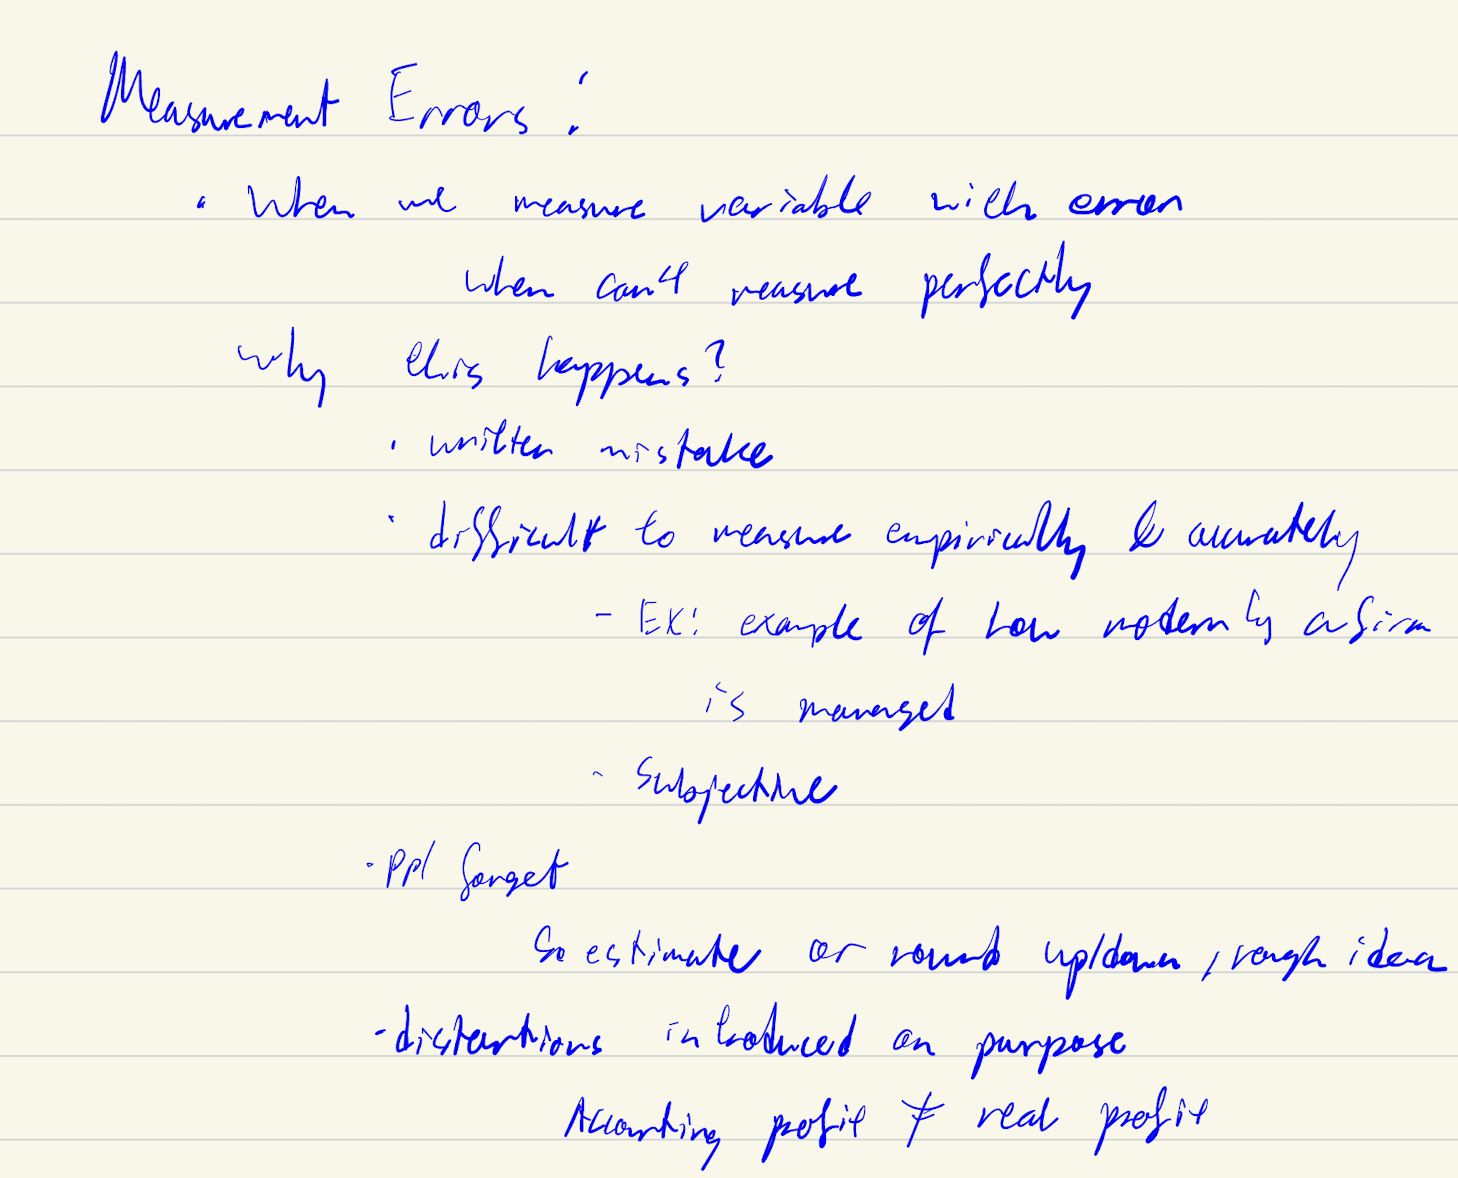 Measurement Errors:
• When we measure variable with error
when can't measure perfectly
Why this happens?
• written mistake
• difficult to measure empirically & accurately
- EX: example of how modernly a firm
is managed
- Subjective
• Ppl forget
So estimate or round up/down, rough idea
- distortions introduced on purpose
Accounting profit ≠ real profit